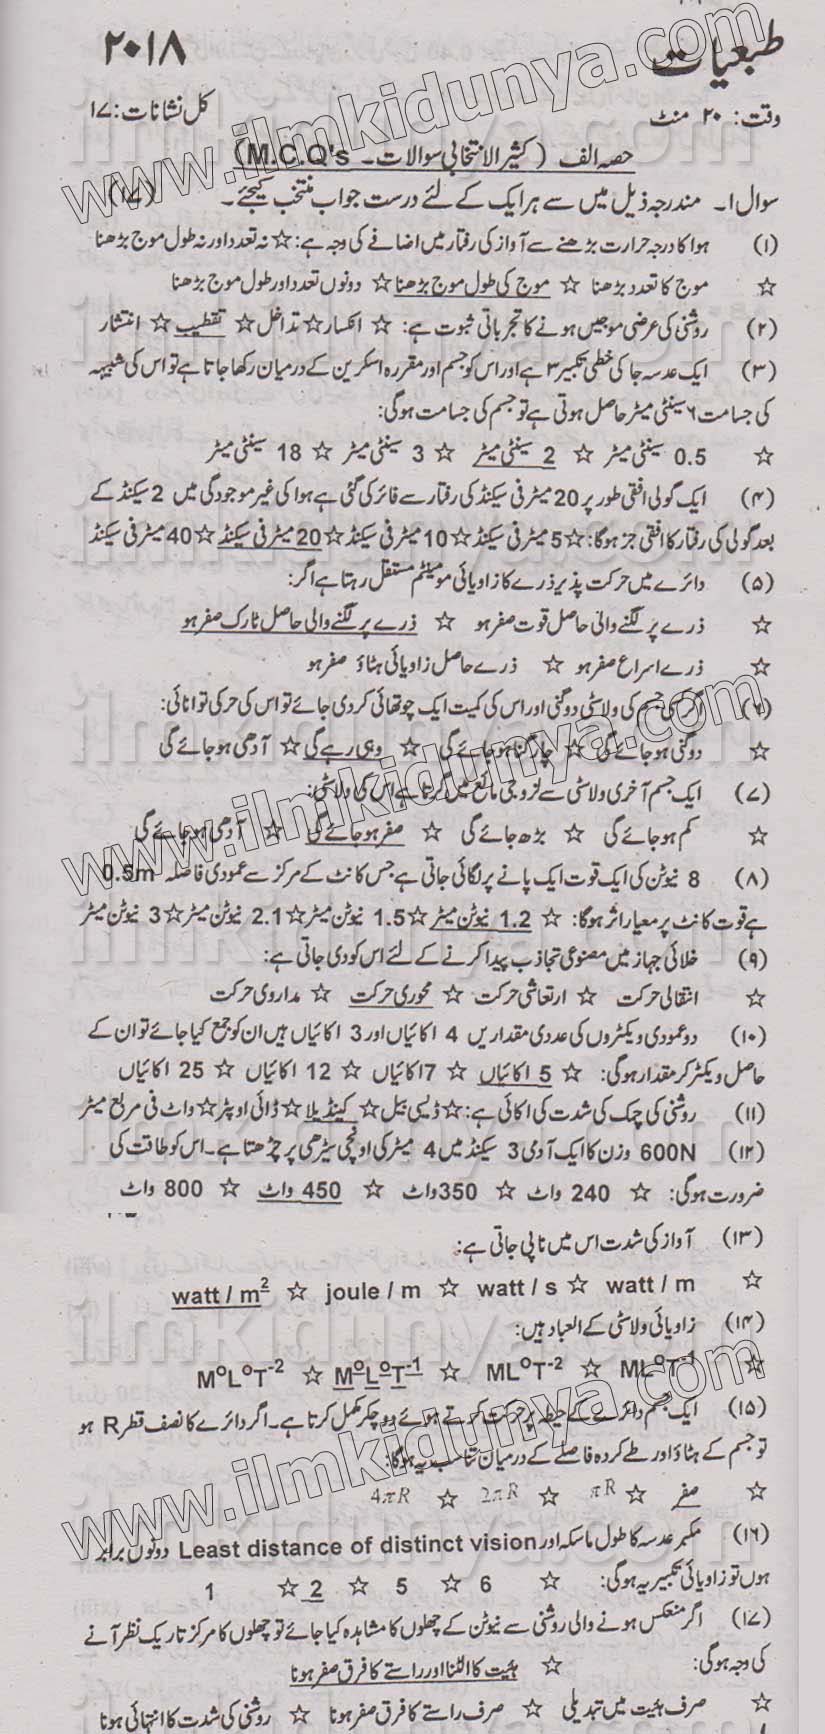 طبعیات ۲۰۱۸
وقت: ۲۰ منٹ کل نشانات: ۱۷
حصہ الف (کثیر الانتخابی سوالات۔ M.C.Q's)
سوال ا۔ مندرجہ ذیل میں سے ہر ایک کے لئے درست جواب منتخب کیجئے۔ (۱۷)
(۱) ہوا کا درجہ حرارت بڑھنے سے آواز کی رفتار میں اضافے کی وجہ ہے: ☆ نہ تعدد اور نہ طول موج بڑھنا
☆ موج کا تعدد بڑھنا ☆ موج کی طول موج بڑھنا ☆ دونوں تعدد اور طول موج بڑھنا
(۲) روشنی کی عرضی موجیں ہونے کا تجرباتی ثبوت ہے: ☆ انکسار ☆ تداخل ☆ تقطیب ☆ انتشار
(۳) ایک عدسہ جا کی خطی تکبیر ۳ ہے اور اس کو جسم اور مقررہ اسکرین کے درمیان رکھا جاتا ہے تو اس کی شبیہہ
کی جسامت ۶ سینٹی میٹر حاصل ہوتی ہے تو جسم کی جسامت ہوگی:
☆ 0.5 سینٹی میٹر ☆ 2 سینٹی میٹر ☆ 3 سینٹی میٹر ☆ 18 سینٹی میٹر
(۴) ایک گولی افقی طور پر 20 میٹر فی سیکنڈ کی رفتار سے فائر کی گئی ہے ہوا کی غیر موجودگی میں 2 سیکنڈ کے
بعد گولی کی رفتار کا افقی جز ہوگا: ☆ 5 میٹر فی سیکنڈ ☆ 10 میٹر فی سیکنڈ ☆ 20 میٹر فی سیکنڈ ☆ 40 میٹر فی سیکنڈ
(۵) دائرے میں حرکت پذیر ذرے کا زاویائی مومینٹم مستقل رہتا ہے اگر:
☆ ذرے پر لگنے والی حاصل قوت صفر ہو ☆ ذرے پر لگنے والی حاصل ٹارک صفر ہو
☆ ذرے اسراع صفر ہو ☆ ذرے حاصل زاویائی ہٹاؤ صفر ہو
(۶) اگر کسی جسم کی ولاسٹی دوگنی اور اس کی کمیت ایک چوتھائی کردی جائے تو اس کی حرکی توانائی:
☆ دوگنی ہو جائے گی ☆ چارگنا ہو جائے گی ☆ وہی رہے گی ☆ آدھی ہو جائے گی
(۷) ایک جسم آخری ولاسٹی سے لزوجی مائع میں گرتا ہے اس کی ولاسٹی:
☆ کم ہو جائے گی ☆ بڑھ جائے گی ☆ صفر ہو جائے گی ☆ آدھی ہو جائے گی
(۸) 8 نیوٹن کی ایک قوت ایک پانے پر لگائی جاتی ہے جس کا نٹ کے مرکز سے عمودی فاصلہ 0.5m
ہے قوت کا نٹ پر معیار اثر ہوگا: ☆ 1.2 نیوٹن میٹر ☆ 1.5 نیوٹن میٹر ☆ 2.1 نیوٹن میٹر ☆ 3 نیوٹن میٹر
(۹) خلائی جہاز میں مصنوعی تجاذب پیدا کرنے کے لئے اس کو دی جاتی ہے:
☆ انتقالی حرکت ☆ ارتعاشی حرکت ☆ محوری حرکت ☆ مداروی حرکت
(۱۰) دو عمودی ویکٹروں کی عددی مقداریں 4 اکائیاں اور 3 اکائیاں ہیں ان کو جمع کیا جائے تو ان کے
حاصل ویکٹر کر مقدار ہوگی: ☆ 5 اکائیاں ☆ 7 اکائیاں ☆ 12 اکائیاں ☆ 25 اکائیاں
(۱۱) روشنی کی چمک کی شدت کی اکائی ہے: ☆ ڈیسی بیل ☆ کینڈیلا ☆ ڈائی اوپٹر ☆ واٹ فی مربع میٹر
(۱۲) 600N وزن کا ایک آدمی 3 سیکنڈ میں 4 میٹر کی اونچی سیڑھی پر چڑھتا ہے۔ اس کو طاقت کی
ضرورت ہوگی: ☆ 240 واٹ ☆ 350 واٹ ☆ 450 واٹ ☆ 800 واٹ
(۱۳) آواز کی شدت اس میں ناپی جاتی ہے:
☆ watt / m ☆ watt / s ☆ joule / m ☆ watt / m²
(۱۴) زاویائی ولاسٹی کے العباد ہیں:
☆ ML⁰T⁻¹ ☆ ML⁰T⁻² ☆ M⁰L⁰T⁻¹ ☆ M⁰L⁰T⁻²
(۱۵) ایک جسم دائرے کے حیطہ پر حرکت کرتے ہوئے دو چکر مکمل کرتا ہے۔ اگر دائرے کا نصف قطر R ہو
تو جسم کے ہٹاؤ اور طے کردہ فاصلے کے درمیان تناسب یہ ہوگا:
☆ صفر ☆ πR ☆ 2πR ☆ 4πR
(۱۶) مکبر عدسہ کا طول ماسکہ اور Least distance of distinct vision دونوں برابر
ہوں تو زاویائی تکبیر یہ ہوگی: ☆ 6 ☆ 5 ☆ 2 ☆ 1
(۱۷) اگر منعکس ہونے والی روشنی سے نیوٹن کے چھلوں کا مشاہدہ کیا جائے تو چھلوں کا مرکز تاریک نظر آنے
کی وجہ ہوگی: ☆ ہئیت کا الٹنا اور راستے کا فرق صفر ہونا
☆ صرف ہئیت میں تبدیلی ☆ صرف راستے کا فرق صفر ہونا ☆ روشنی کی شدت کا انتہائی ہونا
www.ilmkidunya.com
www.ilmkidunya.com
www.ilmkidunya.com